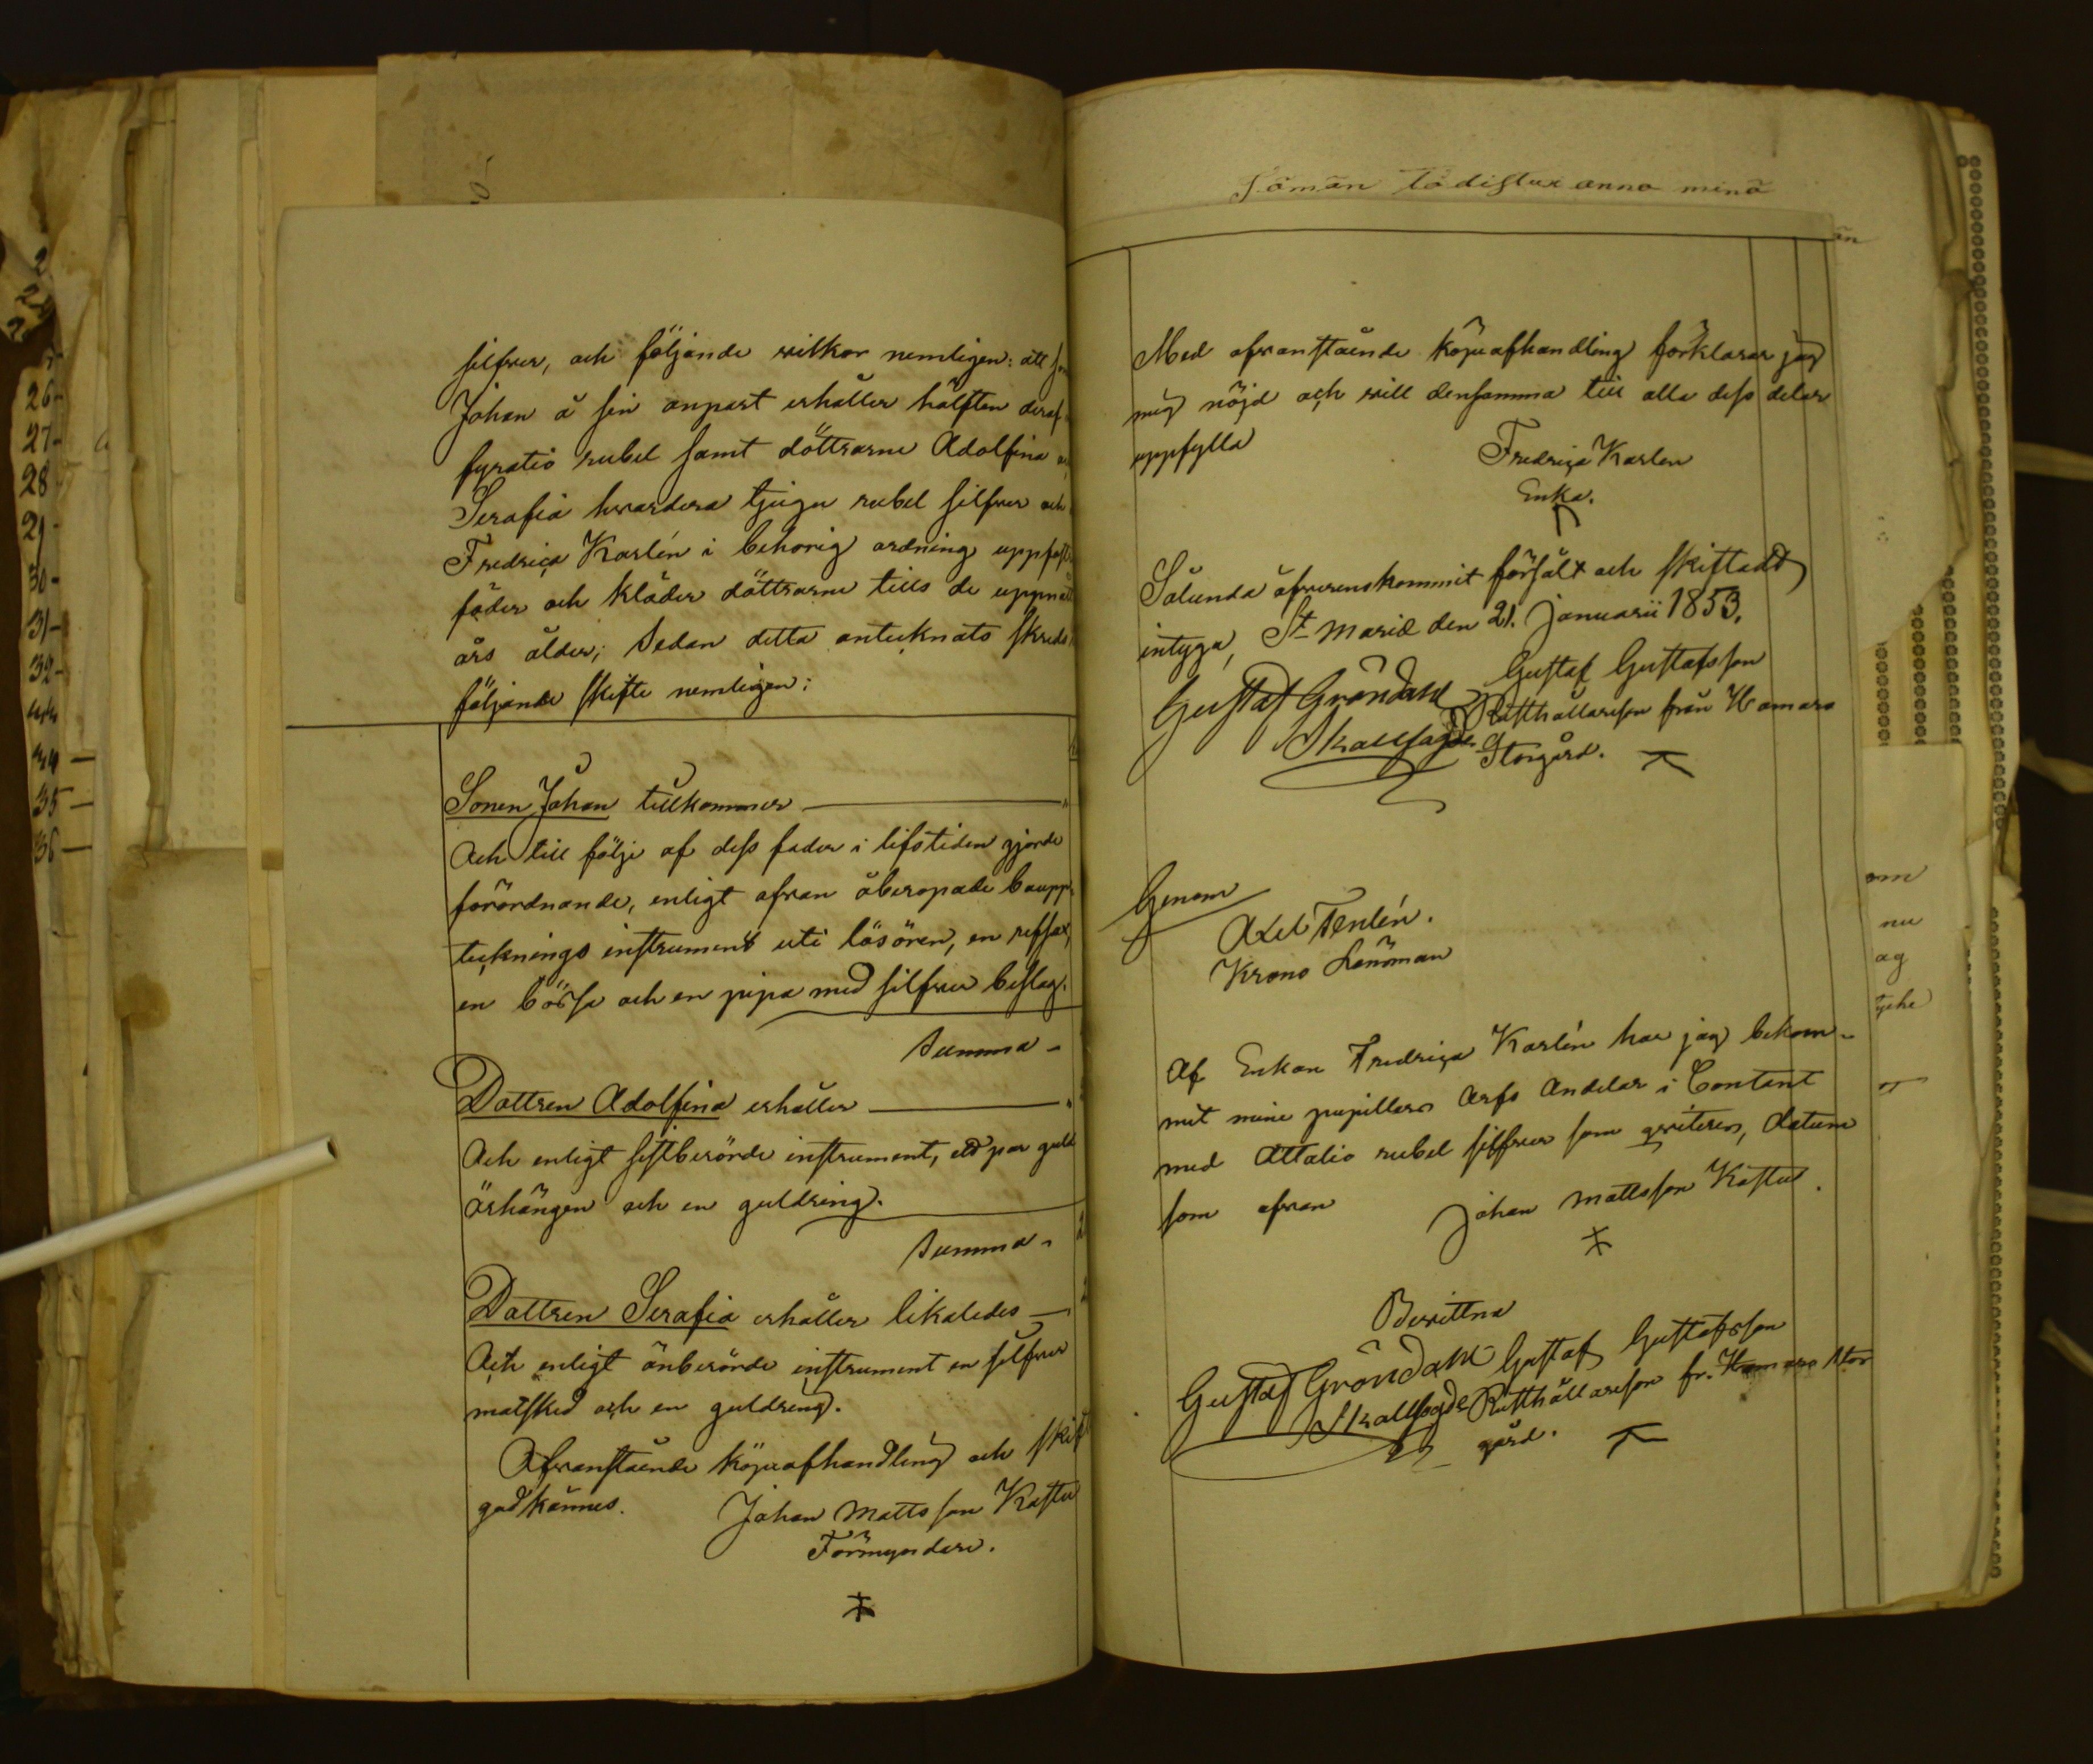 silfver, och följande wilkor nemligen: att
Johan å sin anpart erhåller hälften deraf
fyratio rubel samt döttrarne Adolfina
Serafia hvardera tjugu rubel silfver och
Fredrica Karlén i behörig ordning
föder och kläder döttrarne tills de
års ålder; Sedan detta antecknats
följande skifte nemligen:
Sonen Johan tillkommer
Och till följe af dess fader i lifstiden gjorde
förordnande, enligt ofvan åberopade
tecknings instrument uti lösören, en
en börsa och en pipa med silfver beslag.
Summa
Dottren Adolfina erhåller
Och enligt sistberörde instrument, ett par guld
örhängen och en guldring.
Summa
Dottren Serafia erhåller likaledes
Och enligt önberörde instrument en silfver
matsked och en guldring.
Ofvanstående köpeafhandling och
godkännes. Johan Mattsson Kastu
Förmyndare.
26
27
28
30
31
32
35
36
Med ofvanstående köpeafhandling förklarar jag
mig nöjd och will densamma till alla dess delar
uppfylla
Fredrica Karlen
Enka.
Sålunda öfverenskommit försålt och skiftadt
intyga, St Mariæ den 21. Januarii 1853.
Gustaf Gröndahl Gustaf Gustafsson
Skallfogde Rusthållareson från Hamaro
Storgård.
Genom
Axel Tenlén.
Krono Länsman
Af Enkan Fredrica Karlén har jag bekom-
mit mine pupillers Arfs Andelar i Contant
med Attatio rubel silfver som qviteras, datum
som ofvan
Johan Mattsson Kastu.
Bevittna
Gustaf Gröndahl Gustaf Gustafsson
Skallfogde Rusthållareson fr. Hamaro Stor
gård.
om
nu
ag